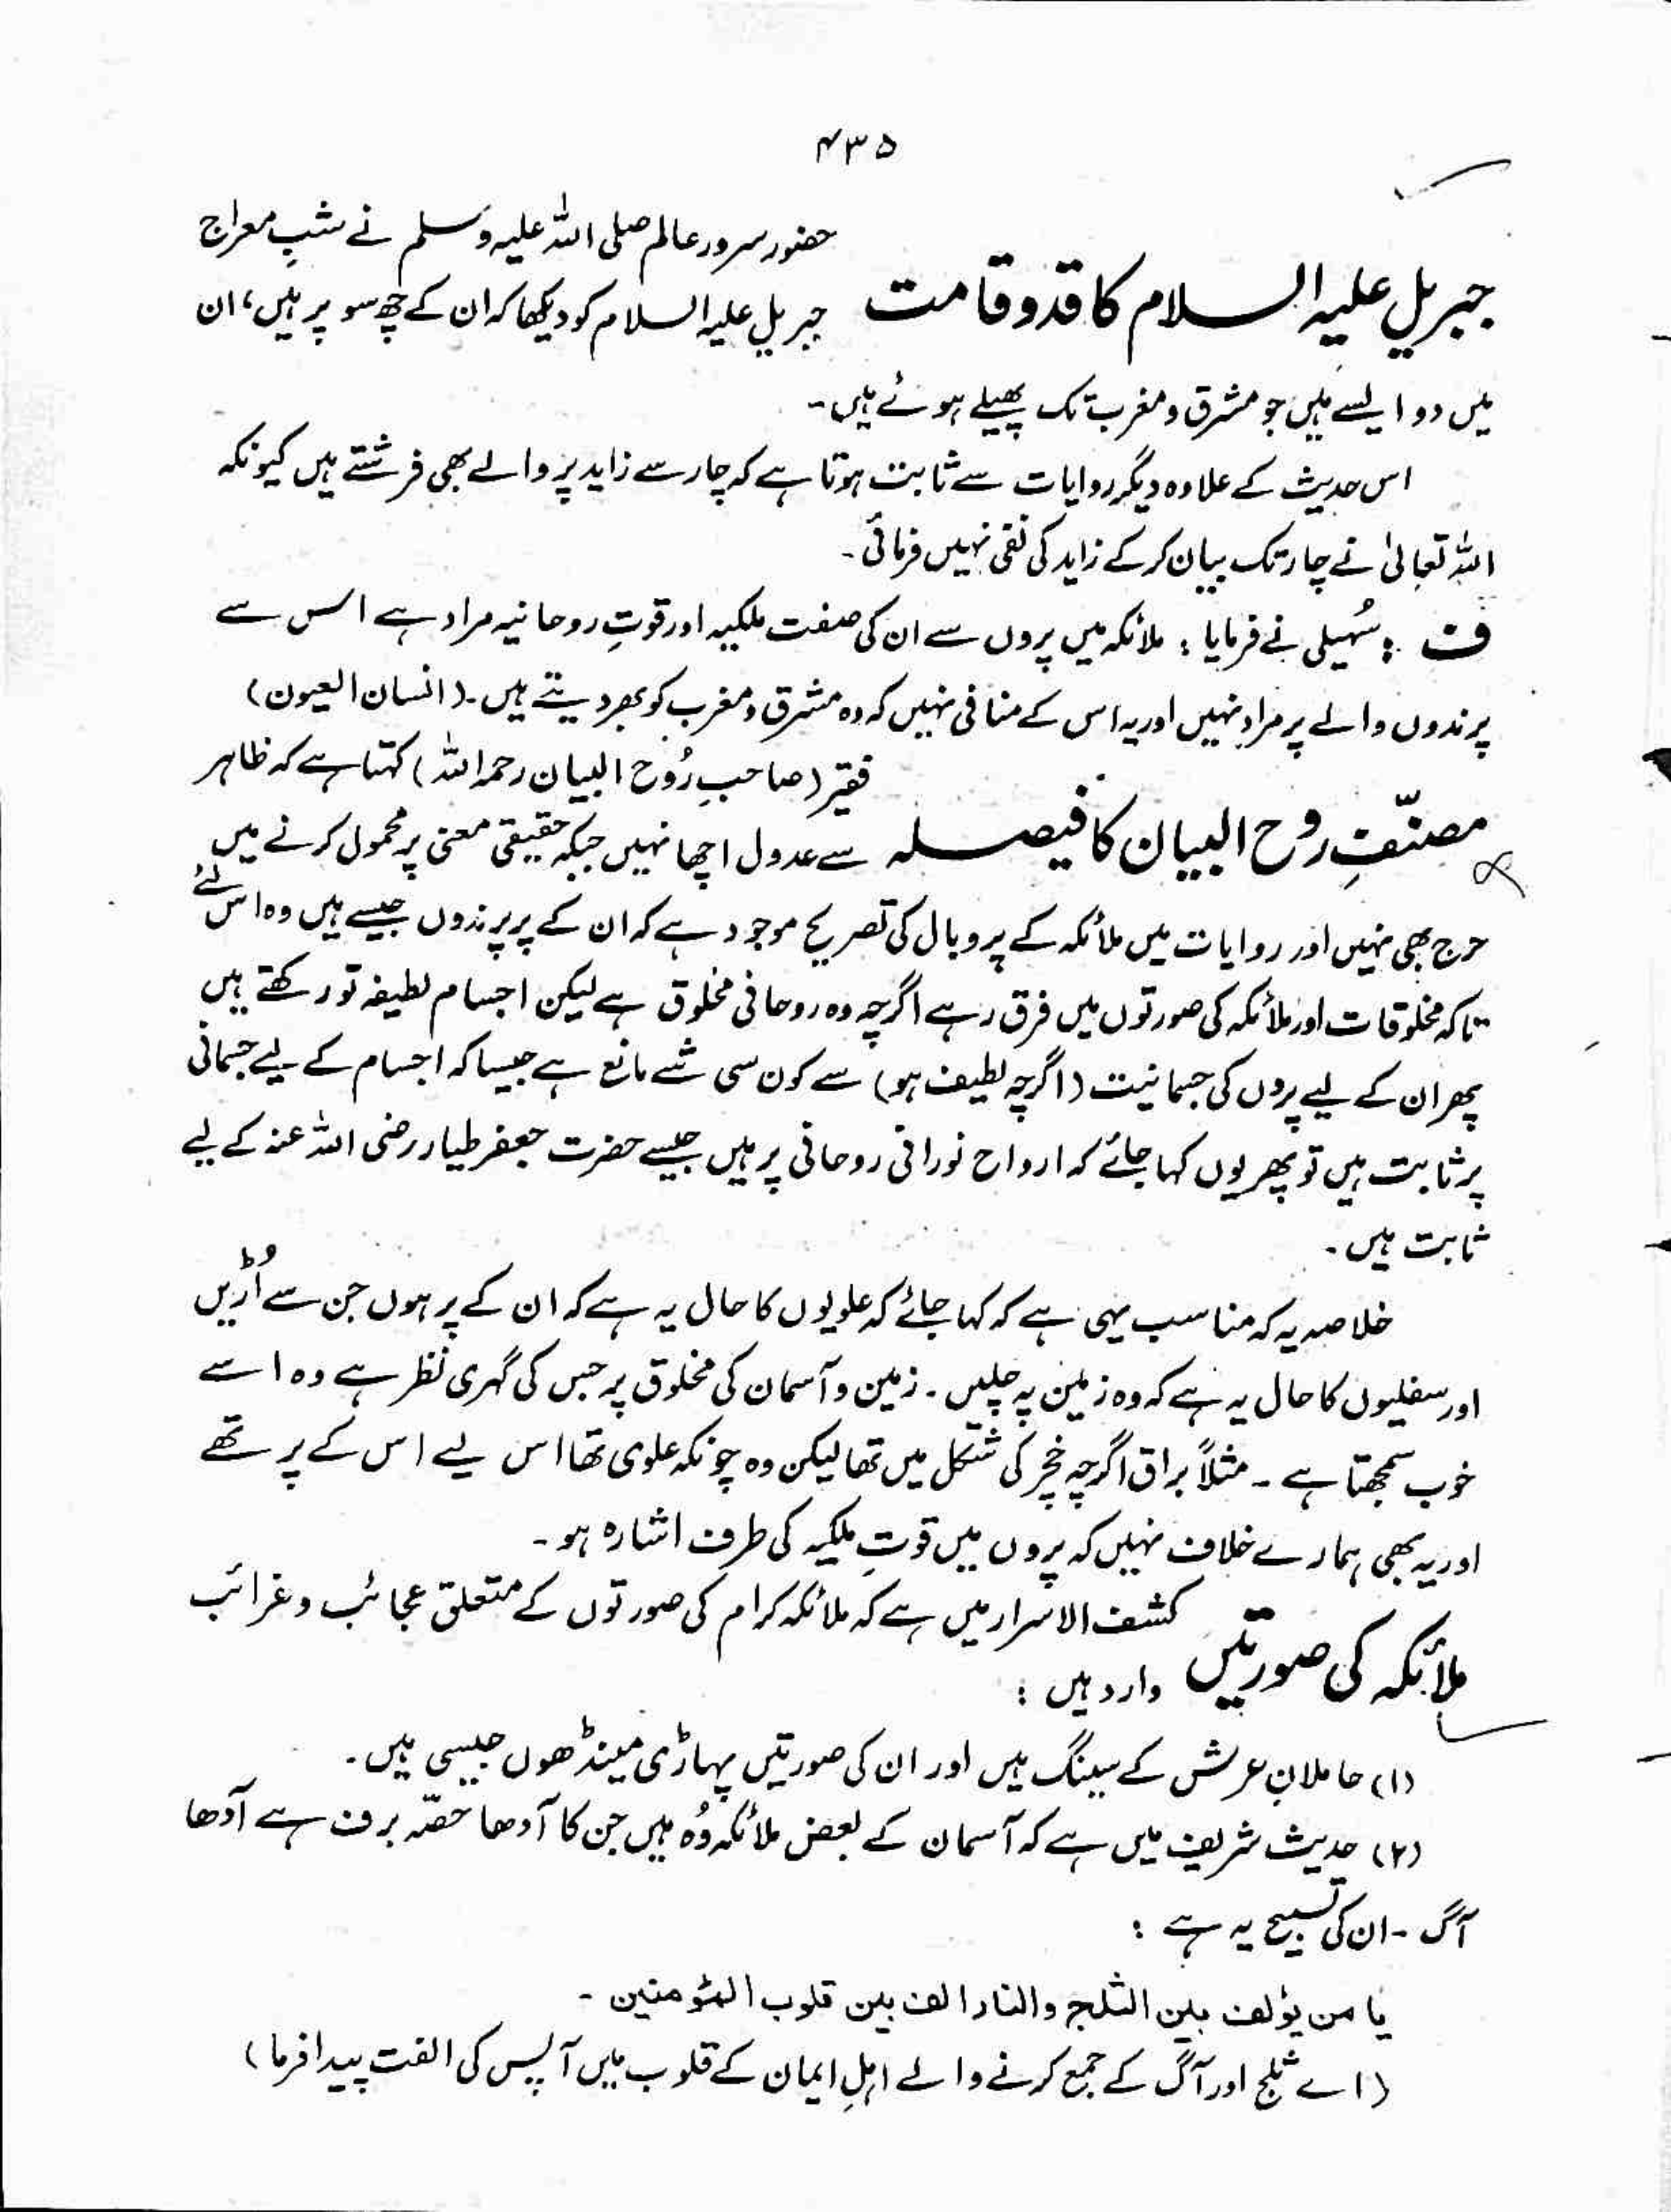 ۴۳۵
جبریل علیہ السلام کا قد و قامت
حضور سرور عالم صلی اللہ علیہ وسلم نے شبِ معراج
جبریل علیہ السلام کو دیکھا کہ ان کے چھ سو پر ہیں، ان
میں دو ایسے ہیں جو مشرق و مغرب تک پھیلے ہوئے ہیں۔
اس حدیث کے علاوہ دیگر روایات سے ثابت ہوتا ہے کہ چار سے زاید پر والے بھی فرشتے ہیں کیونکہ
اللہ تعالیٰ نے چار تک بیان کر کے زاید کی نفی نہیں فرمائی۔
ف : سُہیلی نے فرمایا : ملائکہ میں پروں سے ان کی صفت ملکیہ اور قوتِ روحانیہ مراد ہے اس سے
پرندوں والے پر مراد نہیں اور یہ اس کے منافی نہیں کہ وہ مشرق و مغرب کو بھر دیتے ہیں۔ (انسان العیون)
مصنّفِ روح البیان کا فیصلہ
فقیر (صاحبِ رُوح البیان رحمہ اللہ) کہتا ہے کہ ظاہر
سے عدول اچھا نہیں جبکہ حقیقی معنی پر محمول کرنے میں
حرج بھی نہیں اور روایات میں ملائکہ کے پر و بال کی تصریح موجود ہے کہ ان کے پر پرندوں جیسے ہیں وہ اس لئے
تاکہ مخلوقات اور ملائکہ کی صورتوں میں فرق رہے اگرچہ وہ روحانی مخلوق ہے لیکن اجسام لطیفہ تو رکھتے ہیں
پھر ان کے لیے پروں کی جسمانیت (اگرچہ لطیف ہو) سے کون سی شے مانع ہے جیسا کہ اجسام کے لیے جسمانی
پر ثابت ہیں تو پھر یوں کہا جائے کہ ارواح نورانی روحانی پر ہیں جیسے حضرت جعفر طیار رضی اللہ عنہ کے لیے
ثابت ہیں۔
خلاصہ یہ کہ مناسب یہی ہے کہ کہا جائے کہ علویوں کا حال یہ ہے کہ ان کے پر ہوں جن سے اُڑیں
اور سفلیوں کا حال یہ ہے کہ وہ زمین پہ چلیں۔ زمین و آسمان کی مخلوق پر جس کی گہری نظر ہے وہ اسے
خوب سمجھتا ہے۔ مثلاً براق اگرچہ خچر کی شکل میں تھا لیکن وہ چونکہ علوی تھا اس لیے اس کے پر تھے
اور یہ بھی ہمارے خلاف نہیں کہ پروں میں قوتِ ملکیہ کی طرف اشارہ ہو۔
ملائکہ کی صورتیں
کشف الاسرار میں ہے کہ ملائکہ کرام کی صورتوں کے متعلق عجائب و غرائب
وارد ہیں :
(۱) حاملانِ عرش کے سینگ ہیں اور ان کی صورتیں پہاڑی مینڈھوں جیسی ہیں۔
(۲) حدیث شریف میں ہے کہ آسمان کے بعض ملائکہ وُہ ہیں جن کا آدھا حصّہ برف ہے آدھا
آگ۔ ان کی تسبیح یہ ہے :
یا من یؤلف بین الثلج والنار الف بین قلوب المؤمنین۔
(اے ثلج اور آگ کے جمع کرنے والے اہلِ ایمان کے قلوب میں آپس کی الفت پیدا فرما)